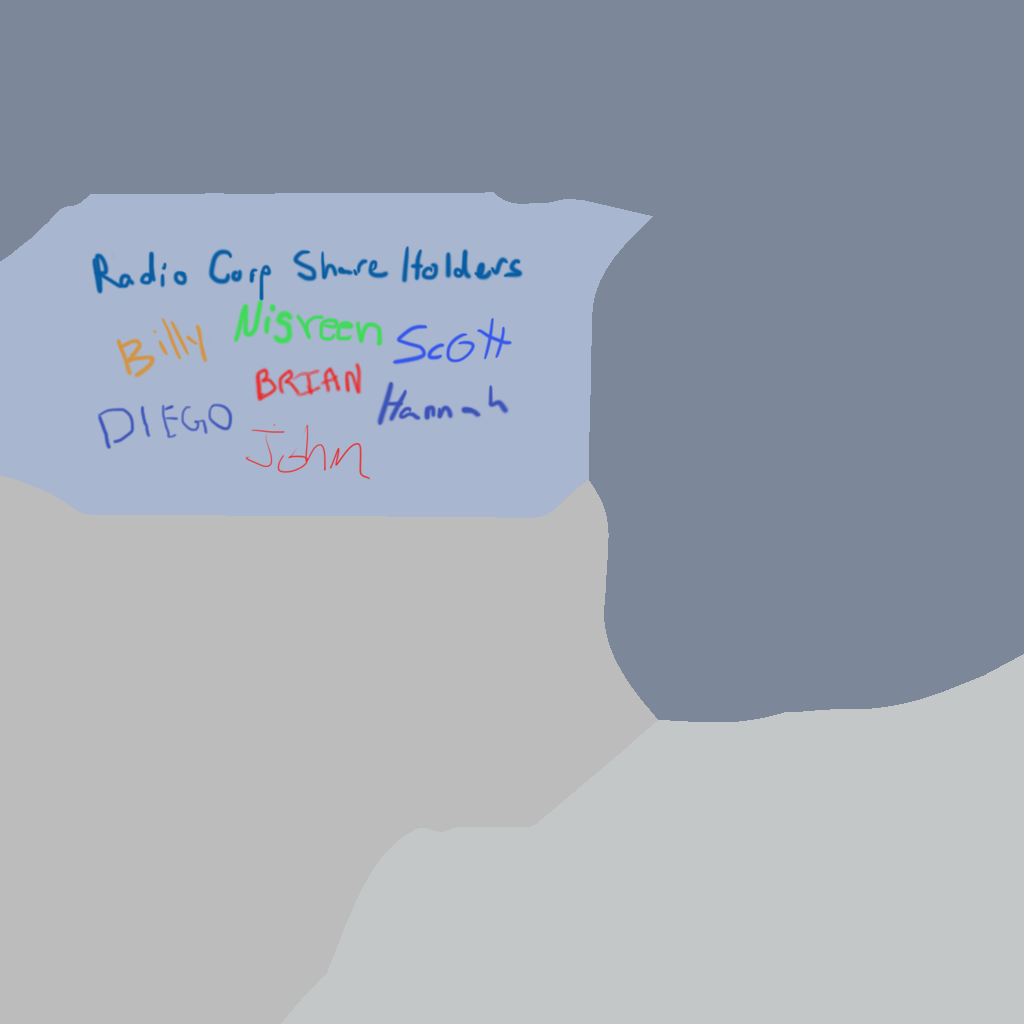 Radio Corp Share Holders
Billy Nisreen Scott
BRIAN
DIEGO Hannah
John